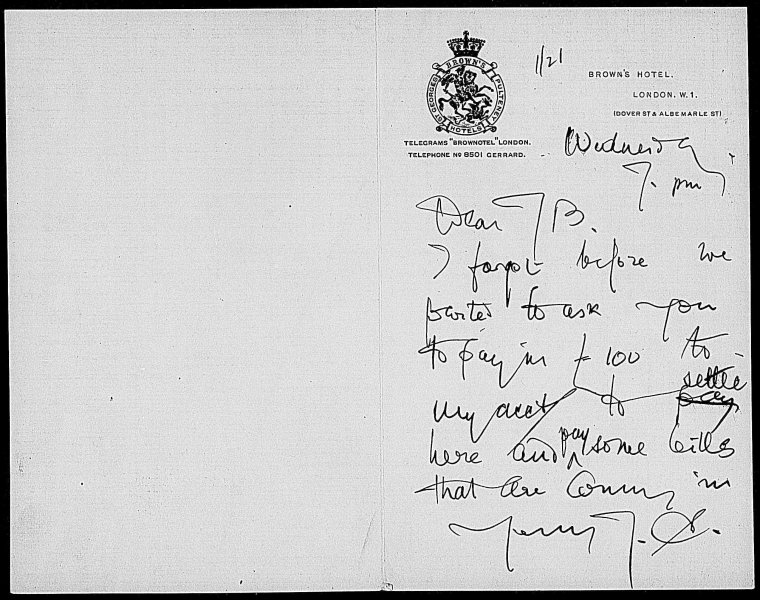 1/21
BROWN'S
ST GEORGES
PULTENEY
HOTELS
BROWN'S HOTEL.
LONDON. W.1.
(DOVER ST & ALBEMARLE ST)
TELEGRAMS "BROWNOTEL" LONDON.
TELEPHONE NO 8501 GERRARD.
Wednesday
7. pm
Dear J B.
I forgot before we
parted to ask you
to pay in £100 to
settle
my acct to pay
here and pay some bills
that are coming in
Yours J.